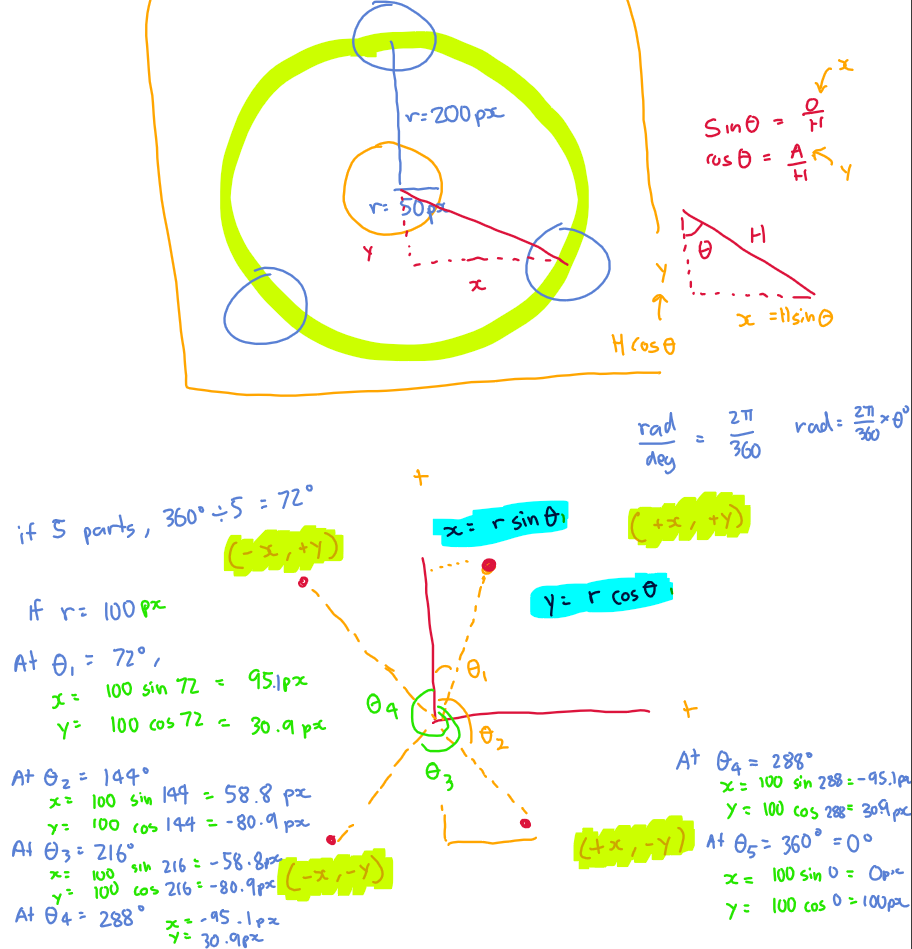 r=200px
r= 50px
y
x
x
Sinθ = O/H
cosθ = A/H
y
θ
H
y
x =Hsinθ
H cosθ
rad/deg = 2π/360
rad= 2π/360 × θ°
+
if 5 parts, 360° ÷5 = 72°
(-x, +y)
x= r sinθ
(+x, +y)
y= r cosθ
If r= 100px
At θ1 = 72°,
x= 100 sin 72 = 95.1px
y= 100 cos 72 = 30.9px
θ1
θ4
θ2
θ3
+
At θ2 = 144°
x= 100 sin 144 = 58.8 px
y= 100 cos 144 = -80.9px
At θ3 = 216°
x= 100 sin 216 = -58.8px
y= 100 cos 216 = -80.9px
(-x, -y)
At θ4 = 288°
x= -95.1px
y= 30.9px
(+x, -y)
At θ4 = 288°
x= 100 sin 288= -95.1px
y= 100 cos 288= 30.9px
At θ5 = 360° =0°
x= 100 sin 0 = 0px
y= 100 cos 0 = 100px